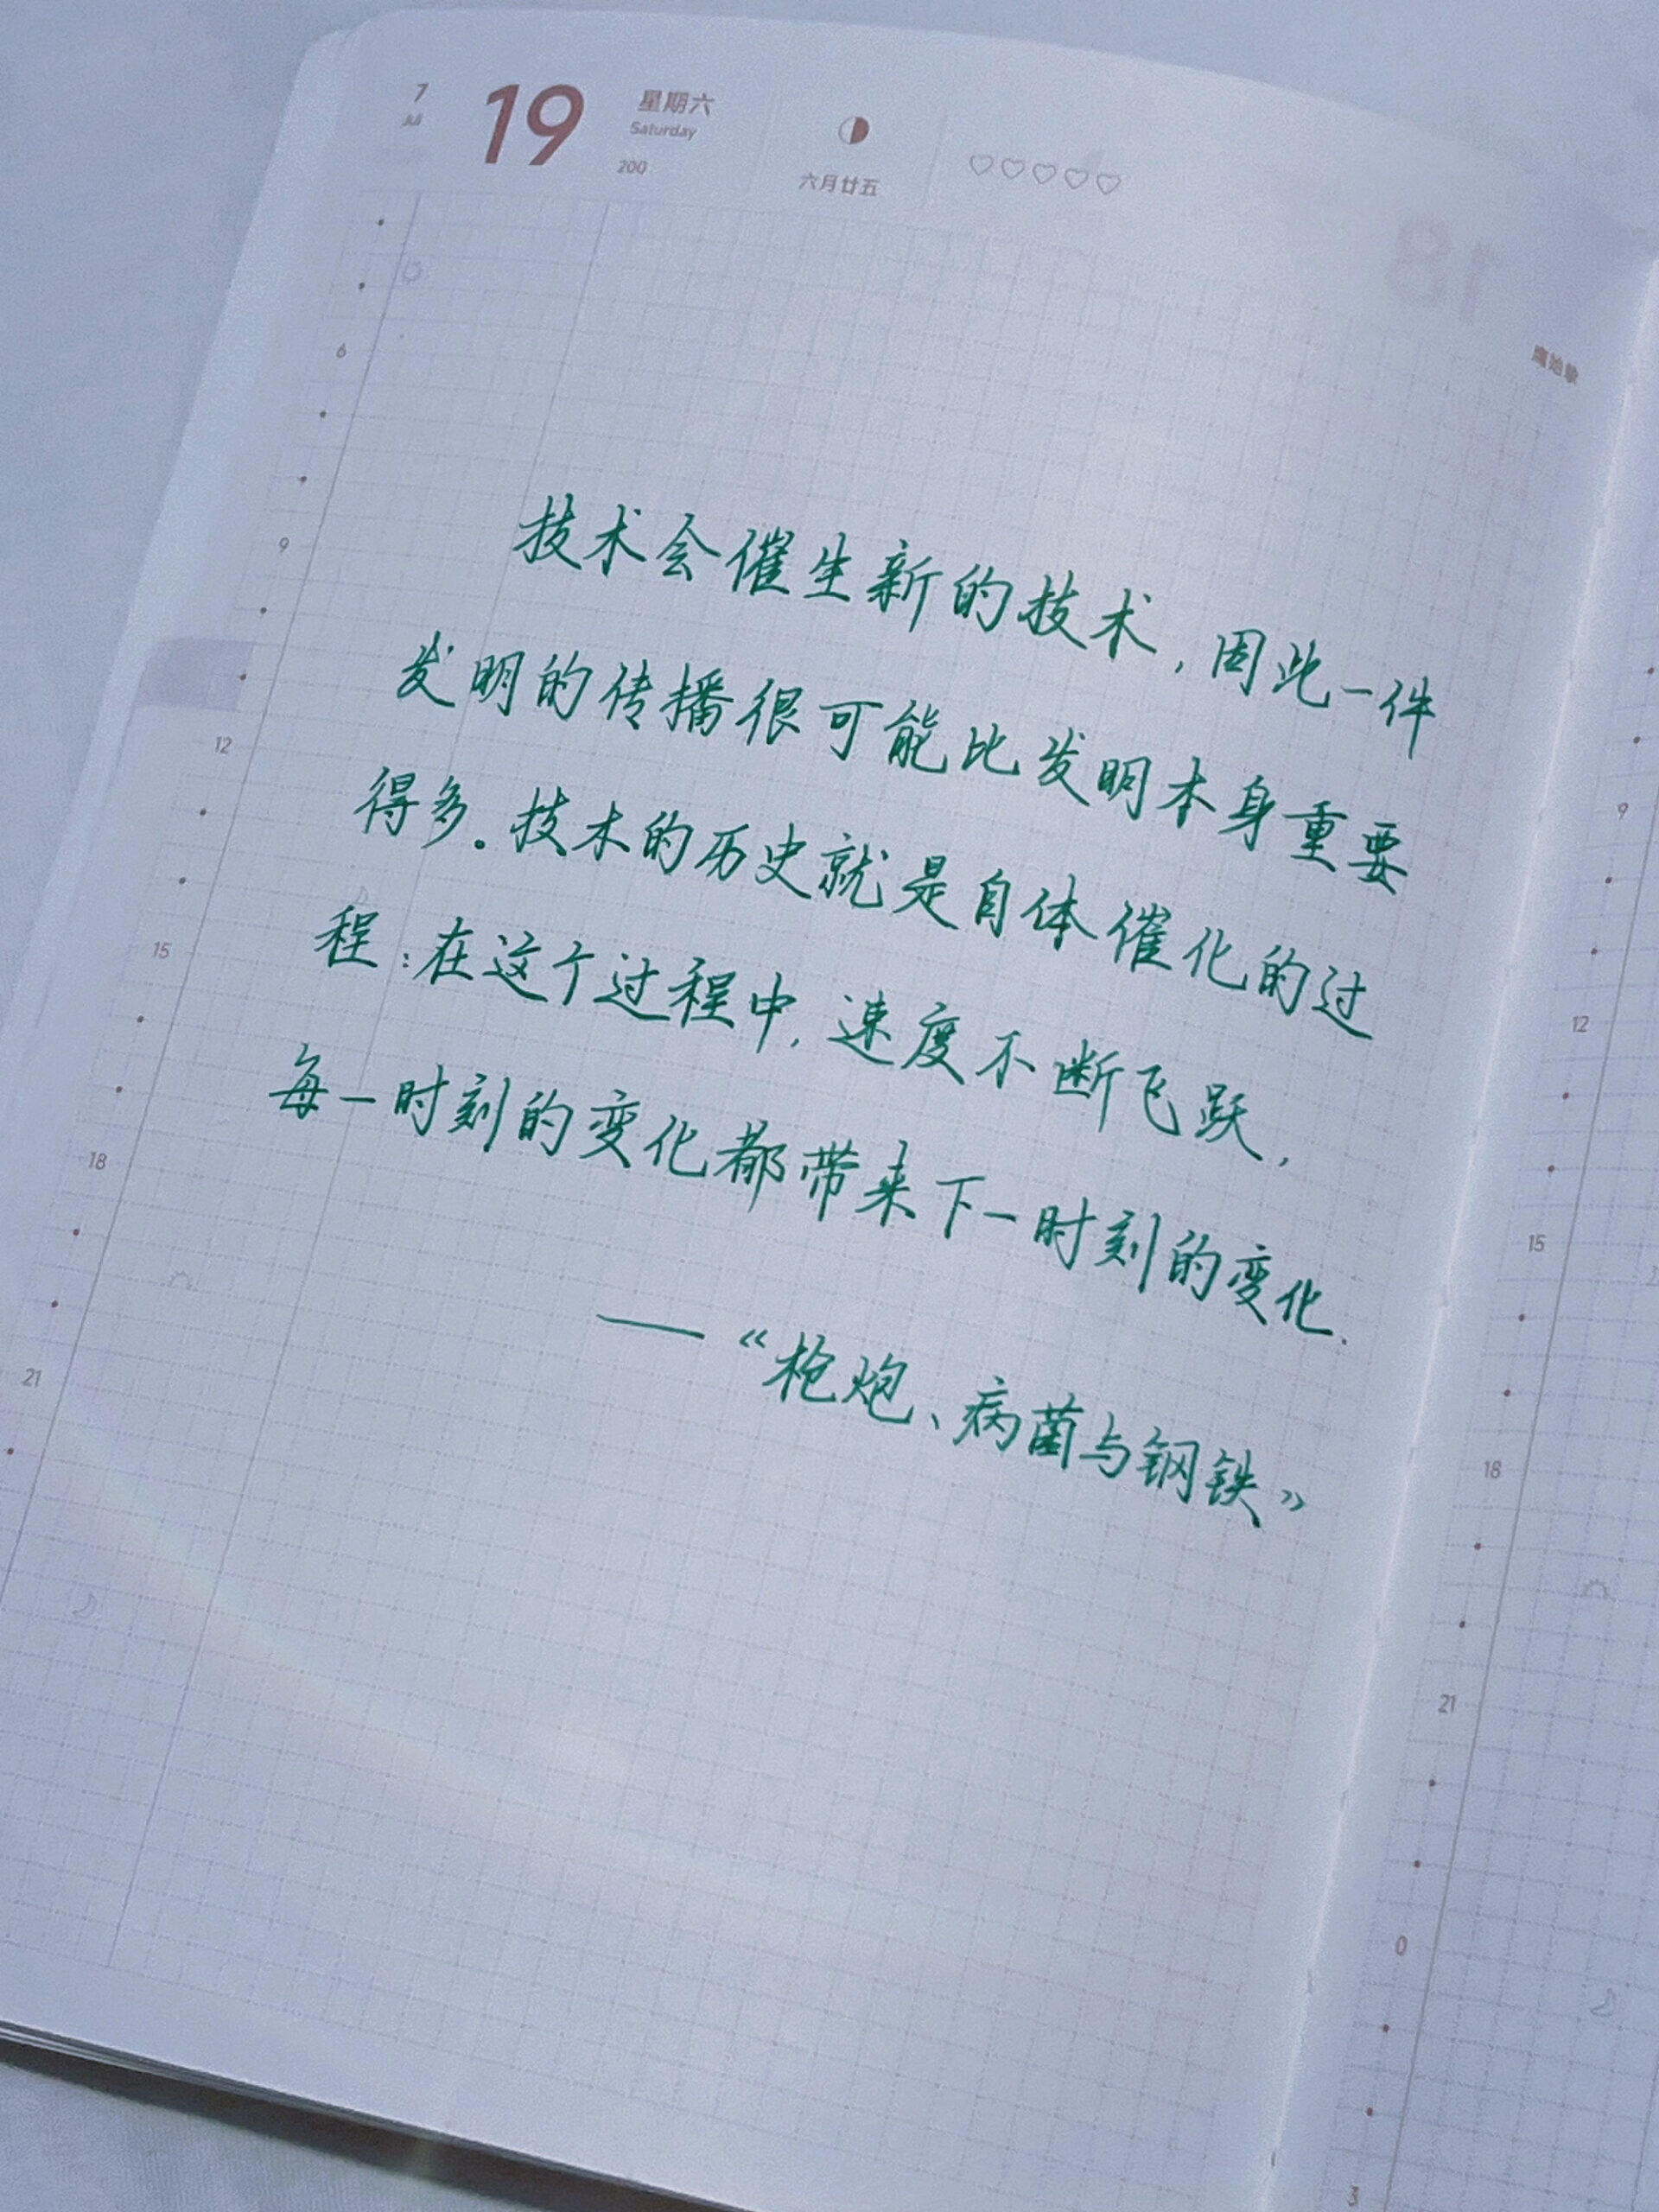 7
JUL
19
星期六
Saturday
200
六月廿五
技术会催生新的技术，因此一件
发明的传播很可能比发明本身重要
得多。技术的历史就是自体催化的过
程：在这个过程中，速度不断飞跃，
每一时刻的变化都带来下一时刻的变化.
——“枪炮、病菌与钢铁”
6
9
12
15
18
21
9
12
15
18
21
0
3